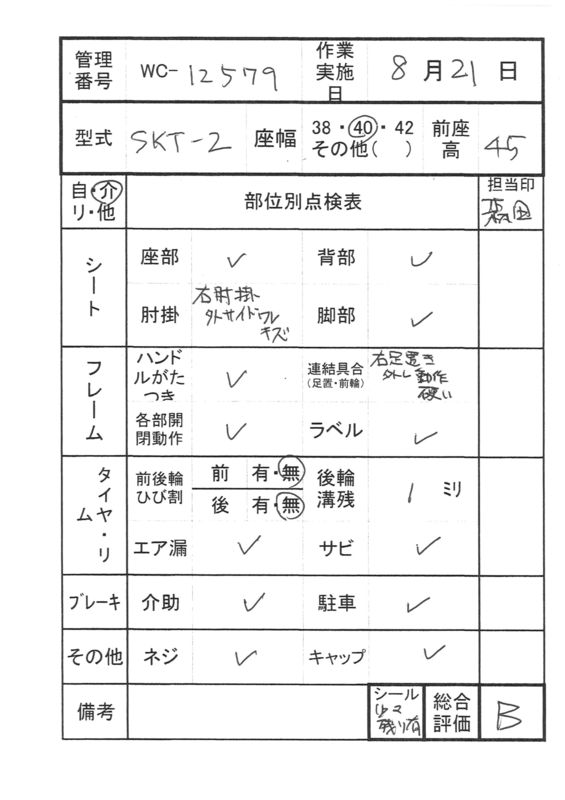 管理番号 WC-12579 作業実施日 8月21日
型式 SKT-2 座幅 38・40・42 その他( ) 前座高 45
自・介 リ・他 部位別点検表 担当印
シート 座部 ✓ 背部 ✓
肘掛 右肘掛 外サイドワレ キズ 脚部 ✓
フレーム ハンドルがたつき ✓ 連結具合 (足置・前輪) 右足置き 外し動作 硬い
各部開閉動作 ✓ ラベル ✓
タイヤ・リム 前後輪ひび割 前 有・無 後輪溝残 1 ミリ
後 有・無
エア漏 ✓ サビ ✓
ブレーキ 介助 ✓ 駐車 ✓
その他 ネジ ✓ キャップ ✓
備考 シール 残り有 総合評価 B